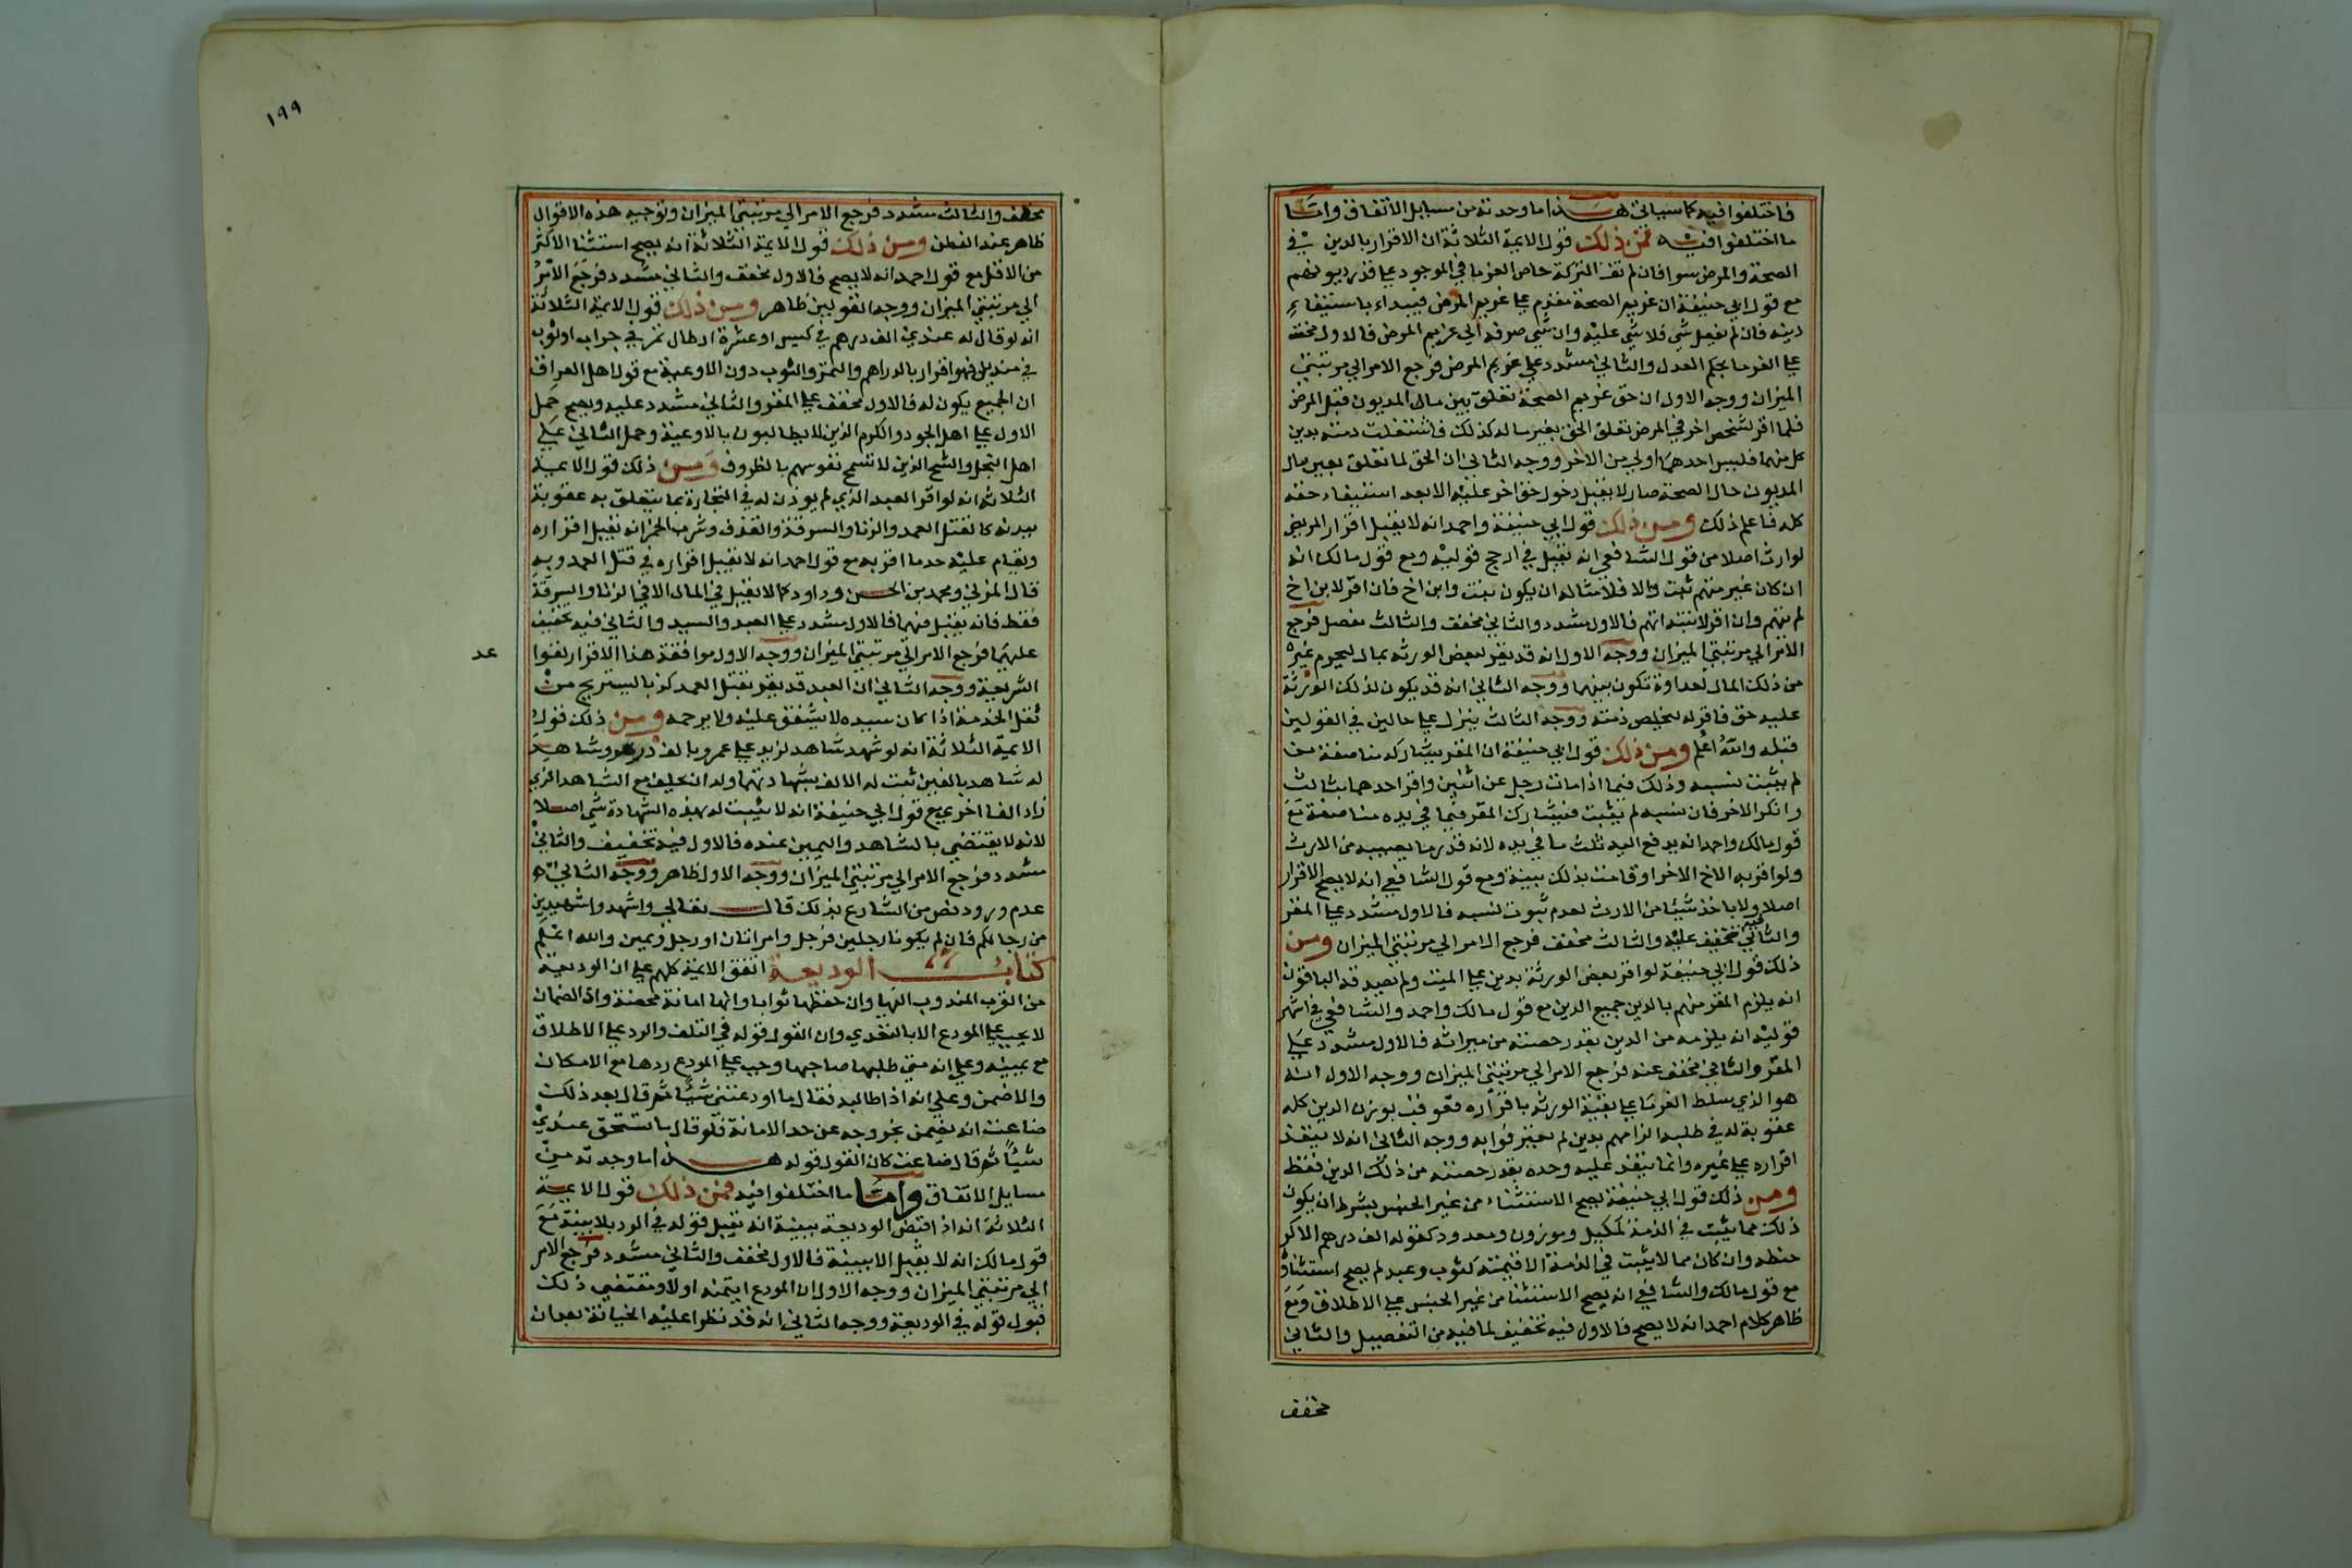 فاختلفوا فيه كما سياتي هذا ما وجدته من مسايل الاتفاق واما
ما اختلفوا فيه فمن ذلك قول الايمة الثلاثة ان الاقرار بالدين في
الصحة والمرض سوا فان لم تف التركة حاص الغرما في الموجود علي قدر ديونهم
مع قول ابي حنيفة ان غريم الصحة مقدم علي غريم المرض فيبداء باستيفاء
دينه فان لم يفضل شي فلا شي عليه وان شي صرف الي غريم المرض فالاول مخفف
علي الغرما بحكم العدل والثاني مشدد علي غريم المرض فرجع الامر الي مرتبتي
الميزان ووجه الاول ان حق غريم الصحة تعلق بعين مال المديون قبل المرض
فلما اقر لشخص اخر في المرض تعلق الحق بغير ماله كذلك فاشتغلت ذمته بدين
كل منهما فليس احدهما اولي من الاخر ووجه الثاني ان الحق لما تعلق بعين مال
المديون حال الصحة صار لا يقبل دخول حق اخر عليه الا بعد استيفاء حقه
كله فاعلم ذلك ومن ذلك قول ابي حنيفة واحمد انه لا يقبل اقرار المريض
لوارث اصلا من قول الشافعي انه يقبل في ارجح قوليه ومع قول مالك انه
ان كان غير متهم ثبت والا فلا مثاله ان يكون بنت وابن اخ فان اقر لابن اخ
لم يتهم وان اقر لابنته اتهم فالاول مشدد والثاني مخفف والثالث مفصل فرجع
الامر الي مرتبتي الميزان ووجه الاول انه قد يقر لبعض الورثه بمال ليحرم غيره
من ذلك المال لعداوة تكون بينهما ووجه الثاني انه قد يكون لذلك الورثة
عليه حق فاقر له ليخلص ذمته ووجه الثالث ينزل علي حالين في القولين
قبله والله اعلم ومن ذلك قول ابي حنيفة ان المقر يشاركه مناصفة
لم يثبت نسبه وذلك فيما اذا مات رجل عن اثنين واقر احدهما بثالث
وانكر الاخر فان نسبه لم يثبت فيشارك المقر فيما في يده مناصفة مع
قول مالك واحمد انه يدفع اليه ثلث ما في يده لانه قدر ما يصيبه من الارث
ولو اقر به الاخ الاخر او قامت بذلك بينة ومع قول الشافعي انه لا يصح الاقرار
اصلا ولا ياخذ شيئا من الارث لعدم ثبوت نسبه فالاول مشدد علي المقر
والثاني فيه تخفيف عليه والثالث مخفف فرجع الامر الي مرتبتي الميزان ومن
ذلك قول ابي حنيفة لو اقر بعض الورثة بدين علي الميت ولم يصدقه الباقون
انه يلزم المقر منهم بالدين جميع الدين مع قول مالك واحمد والشافعي في اشهر
قوليه انه يلزمه من الدين بقدر حصته من ميراثه فالاول مشدد علي
المقر والثاني مخفف عنه فرجع الامر الي مرتبتي الميزان ووجه الاول انه
هو الذي سلط الغرما علي بقية الورثه باقراره فعوقب بوزن الدين كله
عقوبة له في طلبه الزامهم بدين لم يعتبر فوا به ووجه الثاني انه لا ينفذ
اقراره علي غيره وانما ينفذ عليه وحده بقدر حصته من ذلك الدين فقط
ومن ذلك قول ابي حنيفة يصح الاستثناء من غير الجنس بشرط ان يكون
ذلك مما يثبت في الذمة كمكيل وموزون ومعدود كقوله الف درهم الا كر
حنطه وان كان مما لا يثبت في الذمة الا قيمته كثوب وعبد لم يصح استثناؤه
مع قول مالك والشافعي انه يصح الاستثنا من غير الجنس علي الاطلاق ومع
ظاهر كلام احمد انه لا يصح فالاول فيه تخفيف لما فيه من التفصيل والثاني
مخفف
١٩٩
مخفف والثالث مشدد فرجع الامر الي مرتبتي الميزان وتوجيه هذه الاقوال
ظاهر عند الفطن ومن ذلك قول الايمة الثلاثة انه يصح استثنا الاكثر
من الاقل مع قول احمد انه لا يصح فالاول مخفف والثاني مشدد فرجع الامر
الي مرتبتي الميزان ووجه القولين ظاهر ومن ذلك قول الايمة الثلاثة
انه لو قال له عندي الف درهم في كيس او عشرة ارطال تمر في جراب او ثوب
في منديل فهو اقرار بالدراهم والتمر والثوب دون الاوعية مع قول اهل العراق
ان الجميع يكون له فالاول مخفف علي المقر والثاني مشدد عليه ويصح حمل
الاول علي اهل الجود والكرم الذين لا يطالبون بالاوعية وحمل الثاني علي
اهل البخل والشح الذين لا تسمح نفوسهم بالظروف ومن ذلك قول الايمة
الثلاثه انه لو اقر العبد الذي لم يوذن له في التجارة بما يتعلق به عقوبة
ببدنه كالقتل العمد والزنا والسرقة والقذف وشرب الخمر انه يقبل اقراره
ويقام عليه حد ما اقر به مع قول احمد انه لا يقبل اقراره في قتل العمد وبه
قال المزني ومحمد بن الحسن وداود كما لا يقبل في المال الا في الزنا والسرقة
فقط فانه يقبل منهما فالاول مشدد علي العبد والسيد والثاني فيه تخفيف
عليهما فرجع الامر الي مرتبتي الميزان ووجه الاول موافقة هذا الاقرار لقوا
عد
الشريعة ووجه الثاني ان العبد قد يقر بقتل العمد كذبا ليستريح من
ثقل الخدمة اذا كان سيده لا يشفق عليه ولا يرحمه ومن ذلك قول
الايمة الثلاثة انه لو شهد شاهد لزيد علي عمرو بالف درهم وشاهد
له شاهد بالفين ثبت له الالف بشهادتهما وله ان يحلف مع الشاهد الذي
زاد الفا اخري مع قول ابي حنيفة انه لا يثبت له بهذه الشهادة شي اصلا
لانه لا يقتضي بالشاهد واليمين عنده فالاول فيه تخفيف والثاني
مشدد فرجع الامر الي مرتبتي الميزان ووجه الاول ظاهر ووجه الثاني
عدم ورود نص من الشارع بذلك قال تعالي واشهدوا شهيدين
من رجالكم فان لم يكونا رجلين فرجل وامراتان او رجل ويمين والله اعلم
كتاب الوديعة اتفق الايمة كلهم علي ان الوديعة
من القرب المندوب اليها وان حفظها ثوابا وانها امانة محضة وان الضمان
لا يجب علي المودع الا بالتعدي وان القول قوله في التلف والرد علي الاطلاق
مع يمينه وعلي انه متي طلبها صاحبها وجب علي المودع ردها مع الامكان
والا ضمن وعلي انه اذا طالبه فقال ما اودعتني شيئا ثم قال بعد ذلك
ضاعت انه يضمن بخروجه عن حد الامانة فلو قال ما تستحق عندي
شيئا ثم قال ضاعت كان القول قوله هذا ما وجدته من
مسايل الاتفاق واما ما اختلفوا فيه فمن ذلك قول الايمة
الثلاثة انه اذا قبض الوديعة ببينة انه يقبل قوله في الرد بلا بينة مع
قول مالك انه لا يقبل الا ببينة فالاول مخفف والثاني مشدد فرجع الامر
الي مرتبتي الميزان ووجه الاول ان المودع ايتمنه اولا ومقتضي ذلك
قبول قوله في الوديعة ووجه الثاني انه قد تطرا عليه الخيانة بعد ان